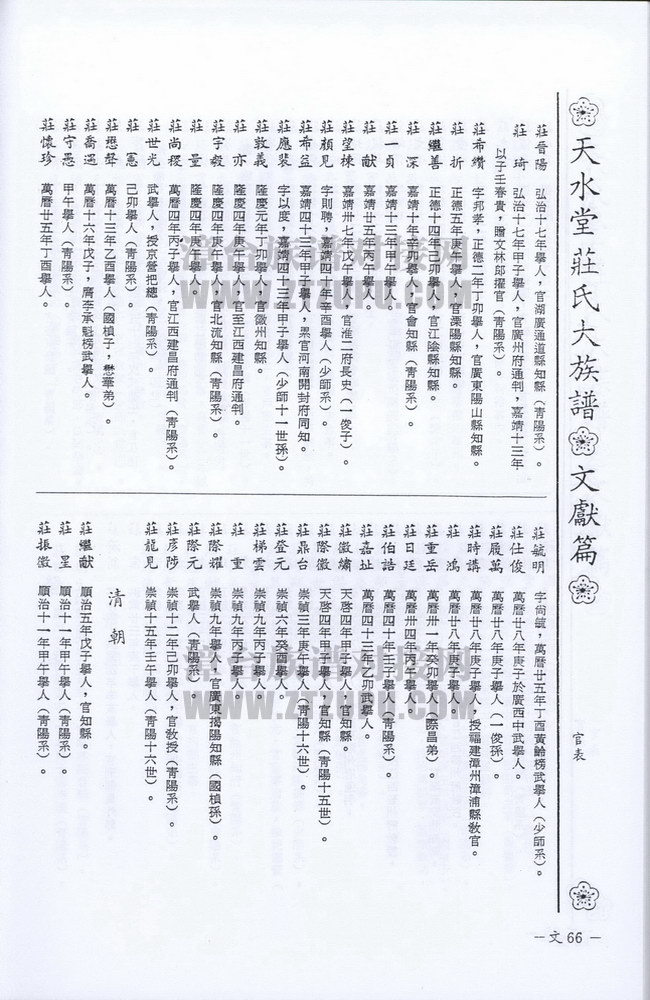 天水堂莊氏大族譜 文獻篇
官表
莊晉陽 弘治十七年舉人,官湖廣通道縣知縣(青陽系)。
莊琦 弘治十七年甲子舉人,官廣州府通判,嘉靖十三年
以子壬春貴,贈文林郎擢官(青陽系)。
莊希纘 字邦孝,正德二年丁卯舉人,官廣東陽山縣知縣。
莊折 正德五年庚午舉人,官溧陽縣知縣。
莊繼善 正德十四年己卯舉人,官江陰縣知縣。
莊深 嘉靖十年辛卯舉人,官會知縣(青陽系)。
莊一貞 嘉靖十三年甲午舉人。
莊獻 嘉靖廿五年丙午舉人。
莊望棟 嘉靖卅七年戊午舉人,官淮二府長史(一俊子)。
莊顏見 字則聘,嘉靖四十年辛酉舉人(少師系)。
莊希益 嘉靖四十三年甲子舉人,累官河南開封府同知。
莊應裴 字以度,嘉靖四十三年甲子舉人(少師十一世孫)。
莊敦義 隆慶元年丁卯舉人,官徽州知縣。
莊亦 隆慶四年庚午舉人,官至江西建昌府通判。
莊宇毅 隆慶四年庚午舉人,官北流知縣(青陽系)。
莊量 隆慶四年庚午舉人。
莊尚稷 萬曆四年丙子舉人,官江西建昌府通判(青陽系)。
莊世光 武舉人,授京營把總(青陽系)。
莊憲 己卯舉人(青陽系)。
莊懋聲 萬曆十三年乙酉舉人(國楨子,懋華弟)。
莊喬遇 萬曆十六年戊子,膺李承魁榜武舉人。
莊守愚 甲午舉人(青陽系)。
莊懷珍 萬曆廿五年丁酉舉人。
莊毓明 字尚毓,萬曆廿五年丁酉黃齡榜武舉人(少師系)。
莊仕俊 萬曆廿八年庚子於廣西中武舉人。
莊履萬 萬曆廿八年庚子舉人(一俊孫)。
莊時講 萬曆廿八年庚子舉人,授福建漳州漳浦縣教官。
莊鴻 萬曆廿八年庚子舉人。
莊重岳 萬曆卅一年癸卯舉人(際昌弟)。
莊日廷 萬曆卅四年丙午舉人。
莊伯語 萬曆四十年壬子舉人(青陽系)。
莊嘉址 萬曆四十三年乙卯武舉人。
莊徽繡 天啓四年甲子舉人,官知縣。
莊際徽 天啓四年甲子舉人,官知縣(青陽十五世)。
莊鼎台 崇禎三年庚午舉人(青陽十六世)。
莊登元 崇禎六年癸酉舉人。
莊梯雲 崇禎九年丙子舉人。
莊重 崇禎九年丙子舉人。
莊際耀 崇禎九年舉人,官廣東揭陽知縣(國楨孫)。
莊際元 武舉人(青陽系)。
莊彥陟 崇禎十二年己卯舉人,官教授(青陽系)。
莊龍見 崇禎十五年壬午舉人(青陽十六世)。
清朝
莊繼獻 順治五年戊子舉人,官知縣。
莊星 順治十一年甲午舉人(青陽系)。
莊振徽 順治十一年甲午舉人(青陽系)。
—文66—